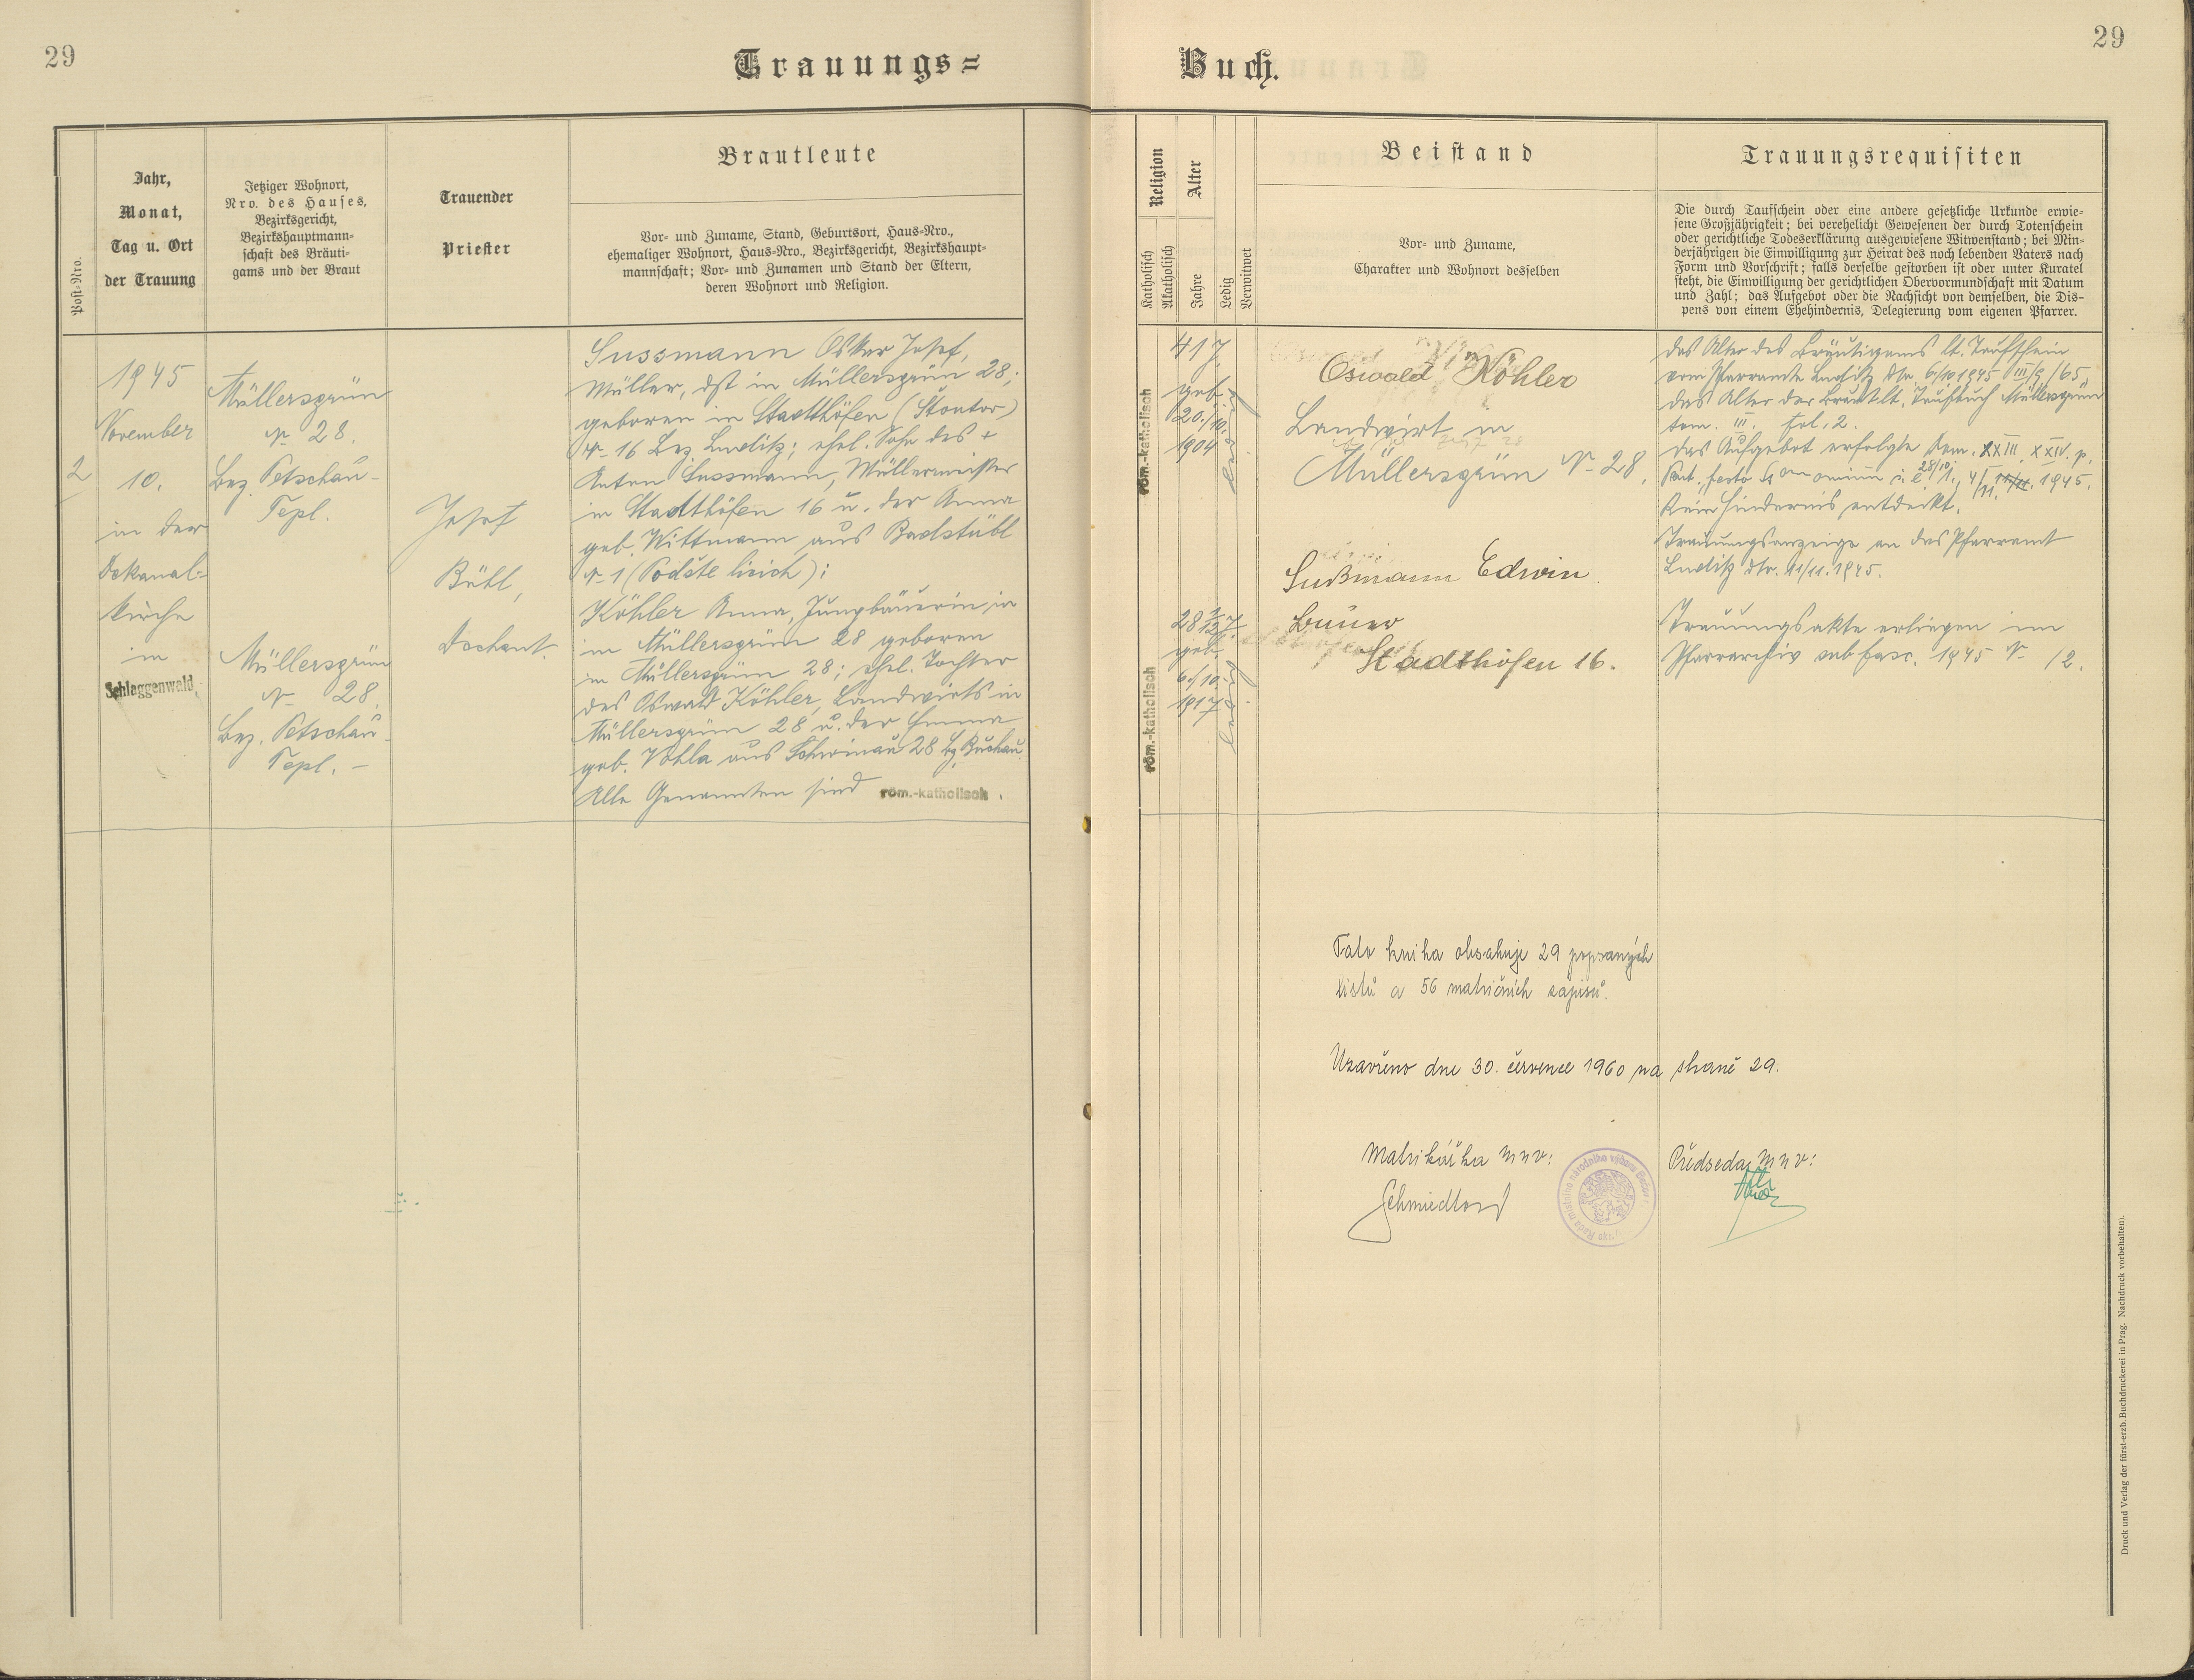 29
Trauungs=
Buch.
29
Post-Nro.
Jahr,
Monat,
Tag u. Ort
der Trauung
Jetziger Wohnort,
Nro. des Hauses,
Bezirksgericht,
Bezirkshauptmann-
schaft des Bräuti-
gams und der Braut
Trauender
Priester
Brautleute
Vor- und Zuname, Stand, Geburtsort, Haus-Nro.,
ehemaliger Wohnort, Haus-Nro., Bezirksgericht, Bezirkshaupt-
mannschaft; Vor- und Zunamen und Stand der Eltern,
deren Wohnort und Religion.
Religion
Katholisch
Akatholisch
Alter
Jahre
Ledig
Verwitwet
Beistand
Vor- und Zuname,
Charakter und Wohnort desselben
Trauungsrequisiten
Die durch Taufschein oder eine andere gesetzliche Urkunde erwie-
sene Großjährigkeit; bei verehelicht Gewesenen der durch Totenschein
oder gerichtliche Todeserklärung ausgewiesene Witwenstand; bei Min-
derjährigen die Einwilligung zur Heirat des noch lebenden Vaters nach
Form und Vorschrift; falls derselbe gestorben ist oder unter Kuratel
steht, die Einwilligung der gerichtlichen Obervormundschaft mit Datum
und Zahl; das Aufgebot oder die Nachsicht von demselben, die Dis-
pens von einem Ehehindernis, Delegierung vom eigenen Pfarrer.
2
1945
November
10.
in der
Dekanal-
kirche
in
Schlaggenwald.
Müllersgrün
N 28.
Bez. Petschau-
Tepl.
Müllersgrün
N 28.
Bez. Petschau-
Tepl. –
Josef
Bühl,
Dechant.
Sussmann Oskar Josef,
Müller, dzt in Müllersgrün 28;
geboren in Stadthöfen (Stoutov)
N 16 Bez. Luditz; ehel. Sohn des +
Anton Sussmann, Müllermeister
in Stadthöfen 16 u. der Anna
geb. Wittmann aus Badstübl
N 1
Köhler Anna, Jungbäuerin in
in Müllersgrün 28 geboren
in Müllersgrün 28; ehel. Tochter
des Oswald Köhler, Landwirts in
Müllersgrün 28 u. der Emma
geb. Vohla aus Schönau 28 Bz. Buchau.
Alle Genannten sind röm.-katholisch.
röm.-katholisch
41 J.
geb.
20./10.
1904
ledig
röm.-katholisch
28
geb.
6./10.
1917
ledig
Oswald Köhler
Landwirt in
Müllersgrün N 28.
Sußmann Edwin.
Bauer
Stadthöfen 16.
Das Alter des Bräutigams lt. Taufschein
vom Pfarramte Luditz dtr. 6/10 1945 III/9/65,
das Alter der Braut lt. Taufbuch Müllersgrün
tom. III. fol. 2.
Das Aufgebot erfolgte Dom. XXIII. XXIV. p.
Pent. 28/10. 4/11. 1945.
Kein Hindernis entdeckt.
Trauungsanzeige an das Pfarramt
Luditz dtr. 11/11. 1945.
Trauungsakte erliegen im
Pfarrarchiv sub fasc. 1945 N 12.
Tato kniha obsahuje 29 popsaných
listů a 56 matričních zápisů.
Uzavřeno dne 30. července 1960 na straně 29.
Matrikářka MNV:
Předseda MNV:
Druck und Verlag der fürst-erzb. Buchdruckerei in Prag. Nachdruck vorbehalten.